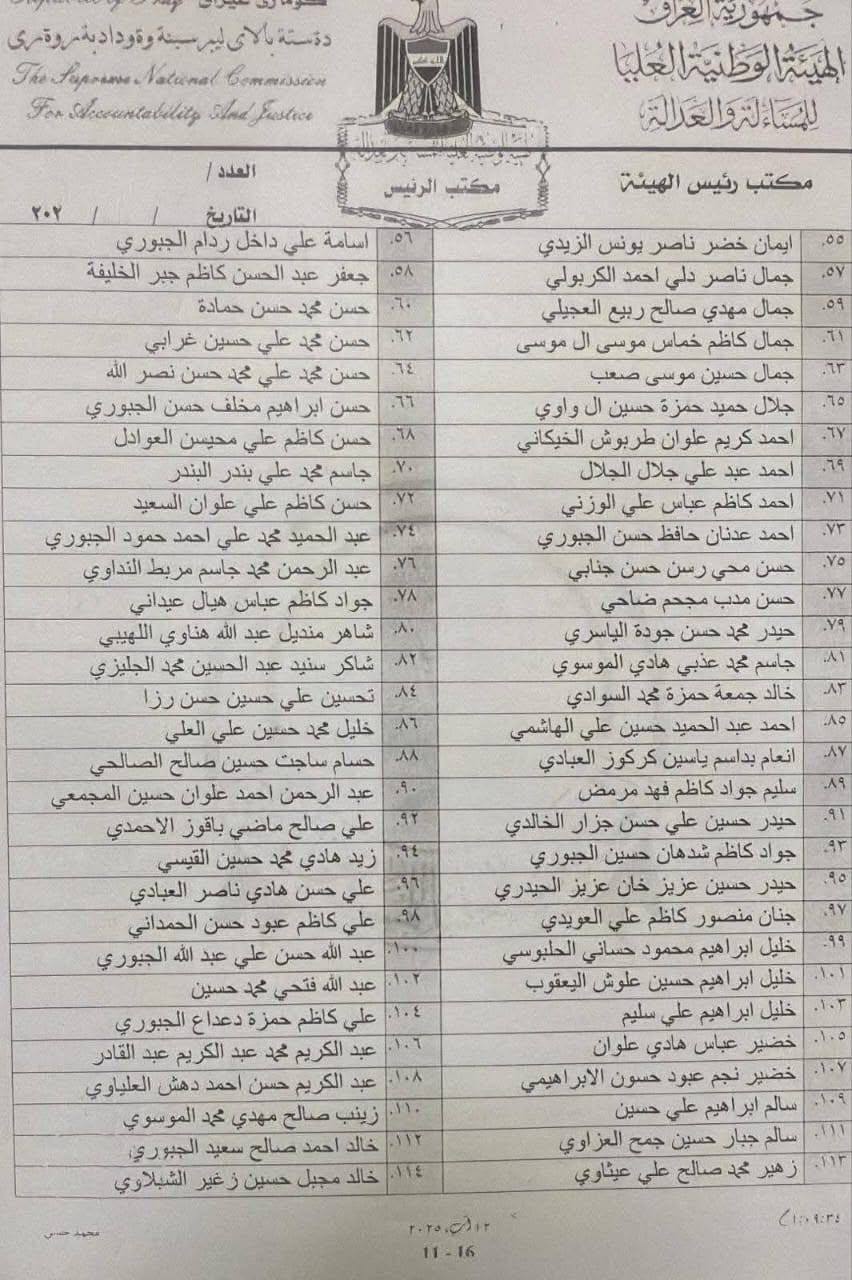 جمهورية العراق
الهيئة الوطنية العليا
للمساءلة والعدالة
كۆماری عێراق
The Supreme National Commission
For Accountability And Justice
مكتب رئيس الهيئة
مكتب الرئيس
العدد /
التاريخ / / ٢٠٢
٥٥. ايمان خضر ناصر يونس الزيدي ٥٦. اسامة علي داخل ردام الجبوري
٥٧. جمال ناصر دلي احمد الكربولي ٥٨. جعفر عبد الحسن كاظم جبر الخليفة
٥٩. جمال مهدي صالح ربيع العجيلي ٦٠. حسن محمد حسن حمادة
٦١. جمال كاظم خماس موسى ال موسى ٦٢. حسن محمد علي حسين غرابي
٦٣. جمال حسين موسى صعب ٦٤. حسن محمد علي محمد حسن نصر الله
٦٥. جلال حميد حمزة حسين ال واوي ٦٦. حسن ابراهيم مخلف حسن الجبوري
٦٧. احمد كريم علوان طربوش الخيكاني ٦٨. حسن كاظم علي محيسن العوادل
٦٩. احمد عبد علي جلال الجلال ٧٠. جاسم محمد علي بندر البندر
٧١. احمد كاظم عباس علي الوزني ٧٢. حسن كاظم علي علوان السعيد
٧٣. احمد عدنان حافظ حسن الجبوري ٧٤. عبد الحميد محمد علي احمد حمود الجبوري
٧٥. حسن محي رسن حسن جنابي ٧٦. عبد الرحمن محمد جاسم مربط النداوي
٧٧. حسن مدب مجحم ضاحي ٧٨. جواد كاظم عباس هيال عيداني
٧٩. حيدر محمد حسن جودة الياسري ٨٠. شاهر منديل عبد الله هناوي اللهيبي
٨١. جاسم محمد عذبي هادي الموسوي ٨٢. شاكر سنيد عبد الحسين محمد الجليزي
٨٣. خالد جمعة حمزة محمد السوادي ٨٤. تحسين علي حسين حسن رزا
٨٥. احمد عبد الحميد حسين علي الهاشمي ٨٦. خليل محمد حسين علي العلي
٨٧. انعام بداسم ياسين كركوز العبادي ٨٨. حسام ساجت حسين صالح الصالحي
٨٩. سليم جواد كاظم فهد مرمض ٩٠. عبد الرحمن احمد علوان حسين المجمعي
٩١. حيدر حسين علي حسن جزار الخالدي ٩٢. علي صالح ماضي باقوز الاحمدي
٩٣. جواد كاظم شدهان حسين الجبوري ٩٤. زيد هادي محمد حسين القيسي
٩٥. حيدر حسين عزيز خان عزيز الحيدري ٩٦. علي حسن هادي ناصر العبادي
٩٧. جنان منصور كاظم علي العويدي ٩٨. علي كاظم عبود حسن الحمداني
٩٩. خليل ابراهيم محمود حساني الحلبوسي ١٠٠. عبد الله حسن علي عبد الله الجبوري
١٠١. خليل ابراهيم حسين علوش اليعقوب ١٠٢. عبد الله فتحي محمد حسين
١٠٣. خليل ابراهيم علي سليم ١٠٤. علي كاظم حمزة دعداع الجبوري
١٠٥. خضير عباس هادي علوان ١٠٦. عبد الكريم محمد عبد الكريم عبد القادر
١٠٧. خضير نجم عبود حسون الابراهيمي ١٠٨. عبد الكريم حسن احمد دهش العلياوي
١٠٩. سالم ابراهيم علي حسين ١١٠. زينب صالح مهدي محمد الموسوي
١١١. سالم جبار حسين جمح العزاوي ١١٢. خالد احمد صالح سعيد الجبوري
١١٣. زهير محمد صالح علي عيثاوي ١١٤. خالد مجبل حسين زغير الشبلاوي
١٢ آب، ٢٠٢٥
11 - 16